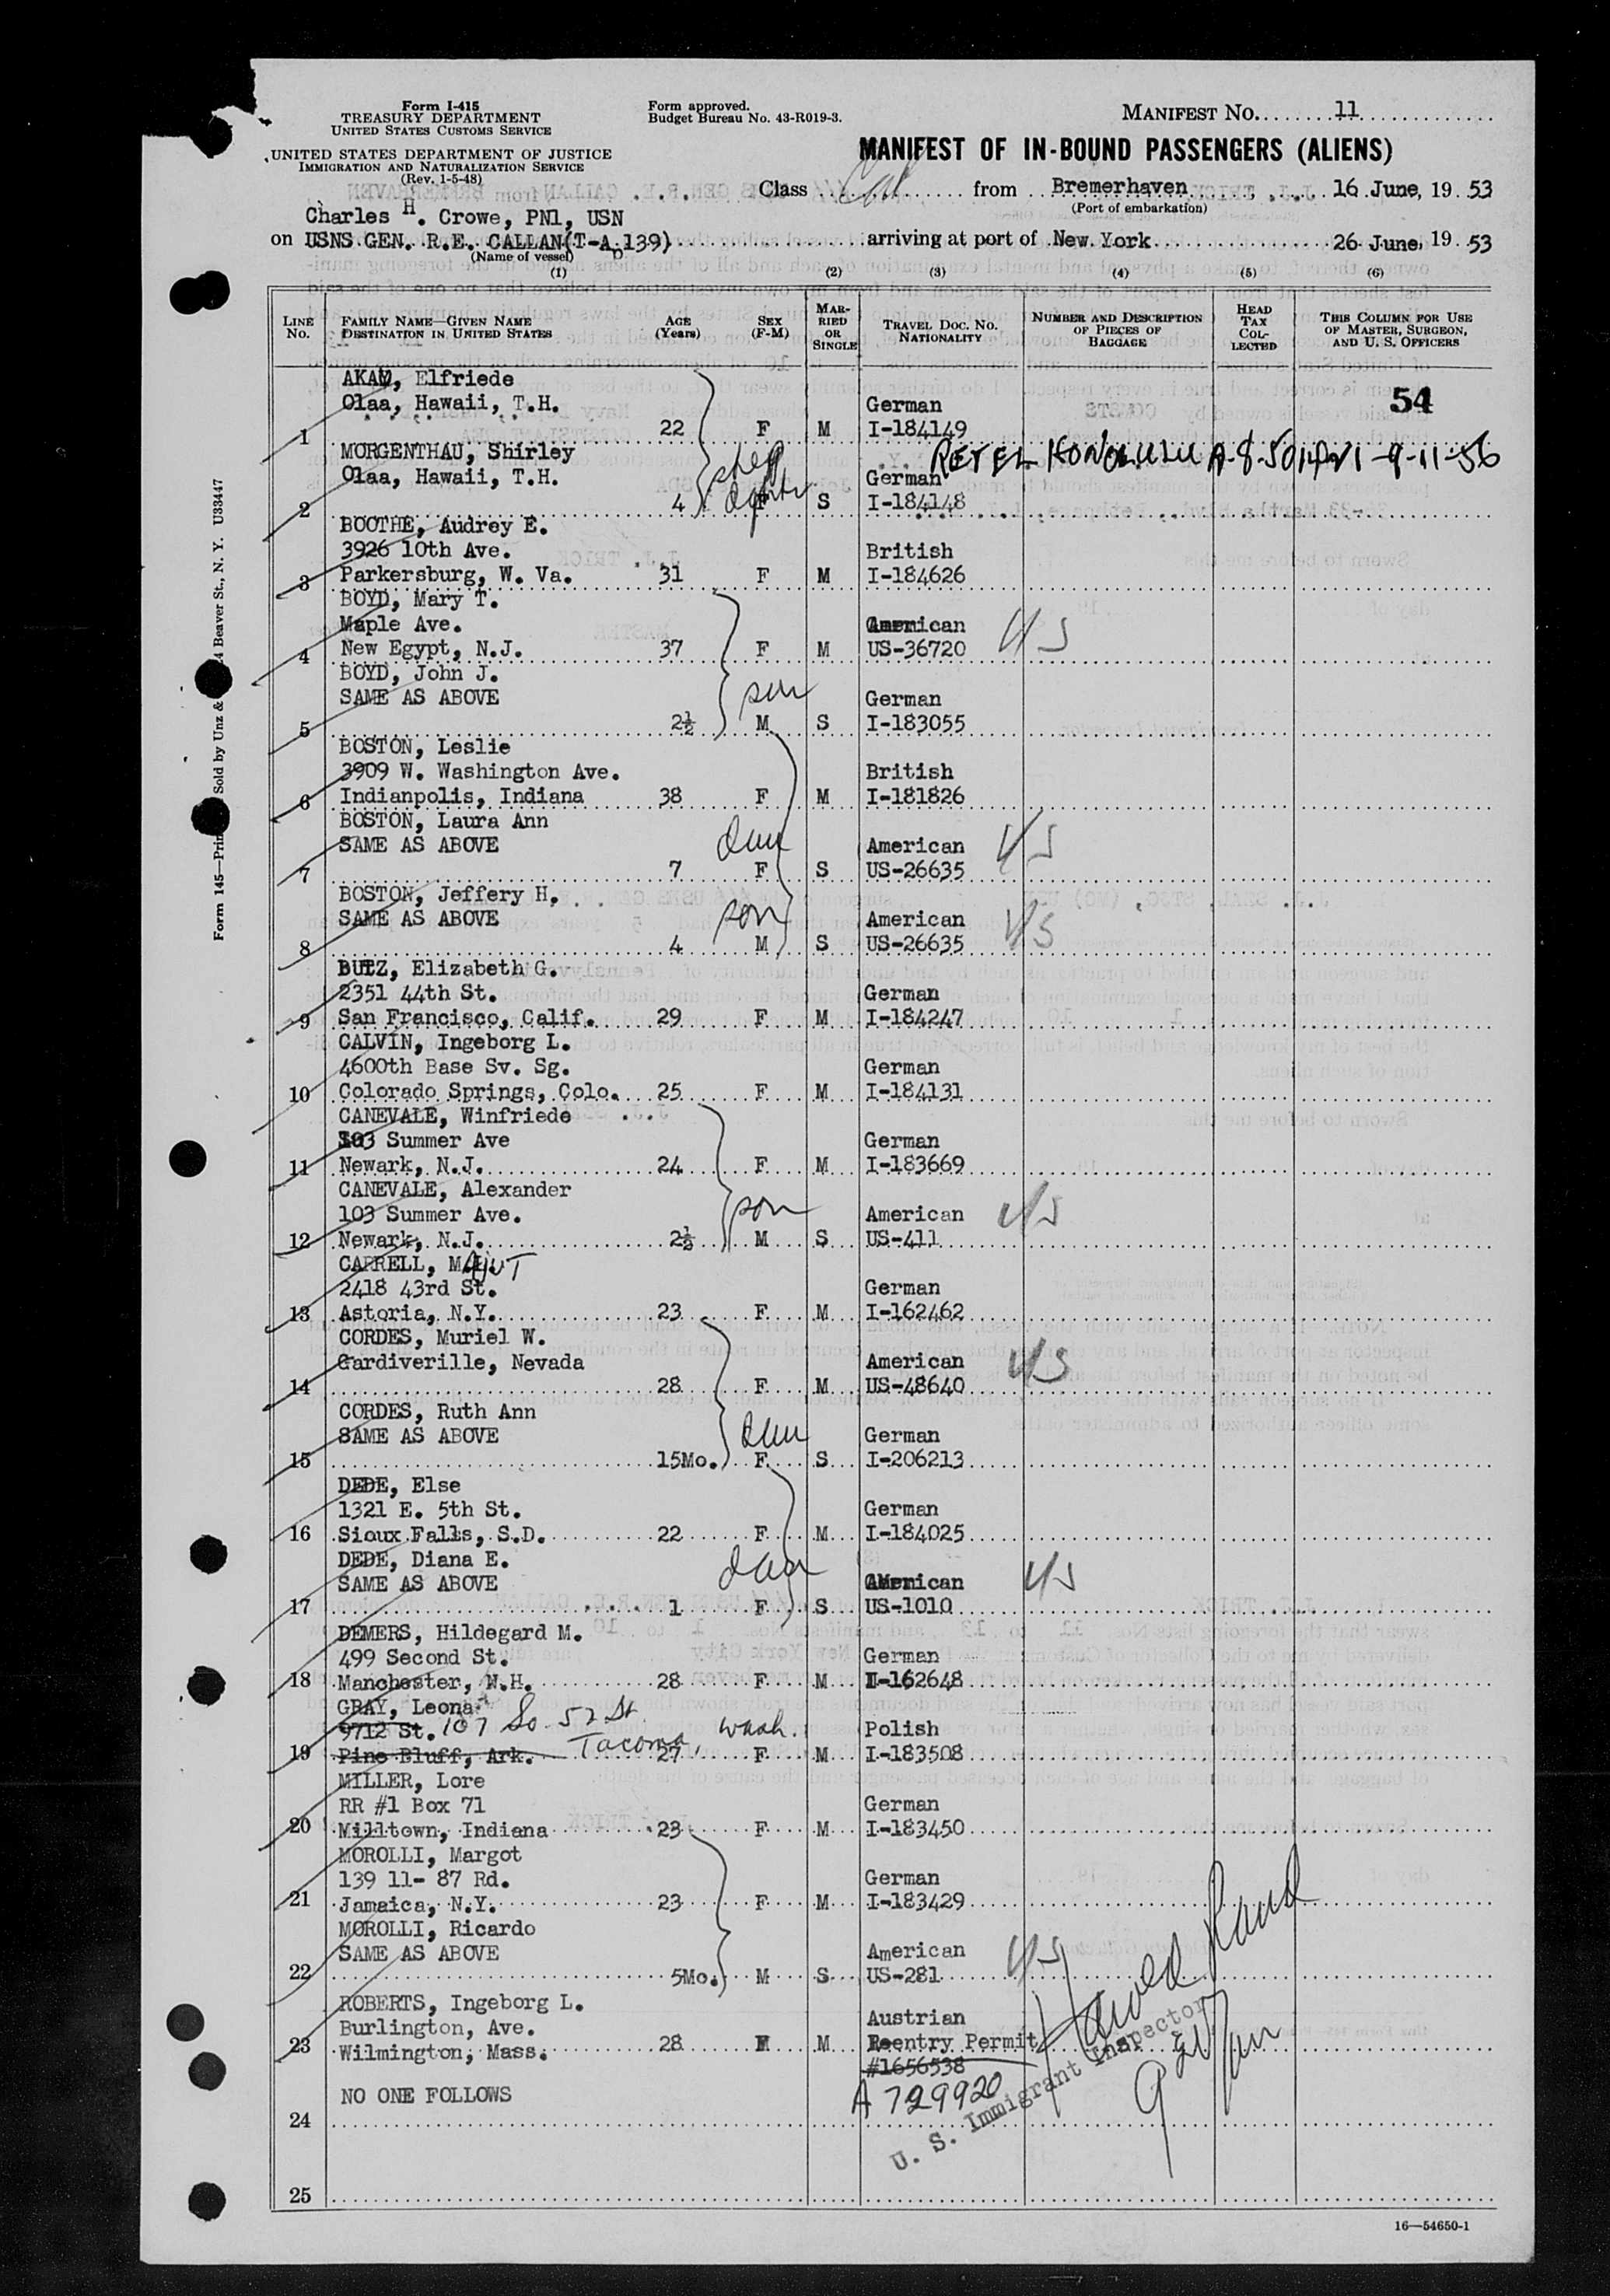 Form I-415
TREASURY DEPARTMENT
UNITED STATES CUSTOMS SERVICE
UNITED STATES DEPARTMENT OF JUSTICE
IMMIGRATION AND NATURALIZATION SERVICE
(Rev. 1-5-48)
Form approved.
Budget Bureau No. 43-R019-3.
MANIFEST NO. 11
MANIFEST OF IN-BOUND PASSENGERS (ALIENS)
Class from Bremerhaven 16 June, 1953
(Port of embarkation)
Charles H. Crowe, PN1, USN
on USNS GEN. R.E. CALLAN(T-Ap 139) arriving at port of New York 26 June, 1953
(Name of vessel)
(1) (2) (3) (4) (5) (6)
LINE No. FAMILY NAME—GIVEN NAME DESTINATION IN UNITED STATES AGE (Years) SEX (F-M) MARRIED OR SINGLE TRAVEL DOC. NO. NATIONALITY NUMBER AND DESCRIPTION OF PIECES OF BAGGAGE HEAD TAX COLLECTED THIS COLUMN FOR USE OF MASTER, SURGEON, AND U. S. OFFICERS
AKAU, Elfriede
Olaa, Hawaii, T.H. German 54
1 22 F M I-184149
MORGENTHAU, Shirley step RETEL HONOLULU 9-11-56
Olaa, Hawaii, T.H. German
2 4 F S I-184148
BOOTHE, Audrey E.
3926 10th Ave. British
3 Parkersburg, W. Va. 31 F M I-184626
BOYD, Mary T.
Maple Ave. American US
4 New Egypt, N.J. 37 F M US-36720
BOYD, John J.
SAME AS ABOVE son German
5 2½ M S I-183055
BOSTON, Leslie
3909 W. Washington Ave. British
6 Indianpolis, Indiana 38 F M I-181826
BOSTON, Laura Ann
SAME AS ABOVE dau American US
7 7 F S US-26635
BOSTON, Jeffery H.
SAME AS ABOVE son American US
8 4 M S US-26635
BUTZ, Elizabeth G.
2351 44th St. German
9 San Francisco, Calif. 29 F M I-184247
CALVIN, Ingeborg L.
4600th Base Sv. Sg. German
10 Colorado Springs, Colo. 25 F M I-184131
CANEVALE, Winfriede
103 Summer Ave German
11 Newark, N.J. 24 F M I-183669
CANEVALE, Alexander
103 Summer Ave. son American US
12 Newark, N.J. 2½ M S US-411
CARRELL,
2418 43rd St. German
13 Astoria, N.Y. 23 F M I-162462
CORDES, Muriel W.
Gardiverille, Nevada American US
14 28 F M US-48640
CORDES, Ruth Ann
SAME AS ABOVE dau German
15 15Mo. F S I-206213
DEDE, Else
1321 E. 5th St. German
16 Sioux Falls, S.D. 22 F M I-184025
DEDE, Diana E.
SAME AS ABOVE dau American US
17 1 F S US-1010
DEMERS, Hildegard M.
499 Second St. German
18 Manchester, N.H. 28 F M I-162648
GRAY, Leona
9712 St. 107 So. 52 St. Polish
19 Pine Bluff, Ark. Tacoma, Wash. 27 F M I-183508
MILLER, Lore
RR #1 Box 71 German
20 Milltown, Indiana 23 F M I-183450
MOROLLI, Margot
139 11- 87 Rd. German
21 Jamaica, N.Y. 23 F M I-183429
MOROLLI, Ricardo
SAME AS ABOVE American US
22 5Mo. M S US-281
ROBERTS, Ingeborg L. Austrian
Burlington, Ave. Reentry Permit
23 Wilmington, Mass. 28 M #1656538
NO ONE FOLLOWS A 729920
24
U. S. Immigrant Inspector
25
16—54650-1
Form 145—Sold by Unz & Beaver St., N. Y. U33447